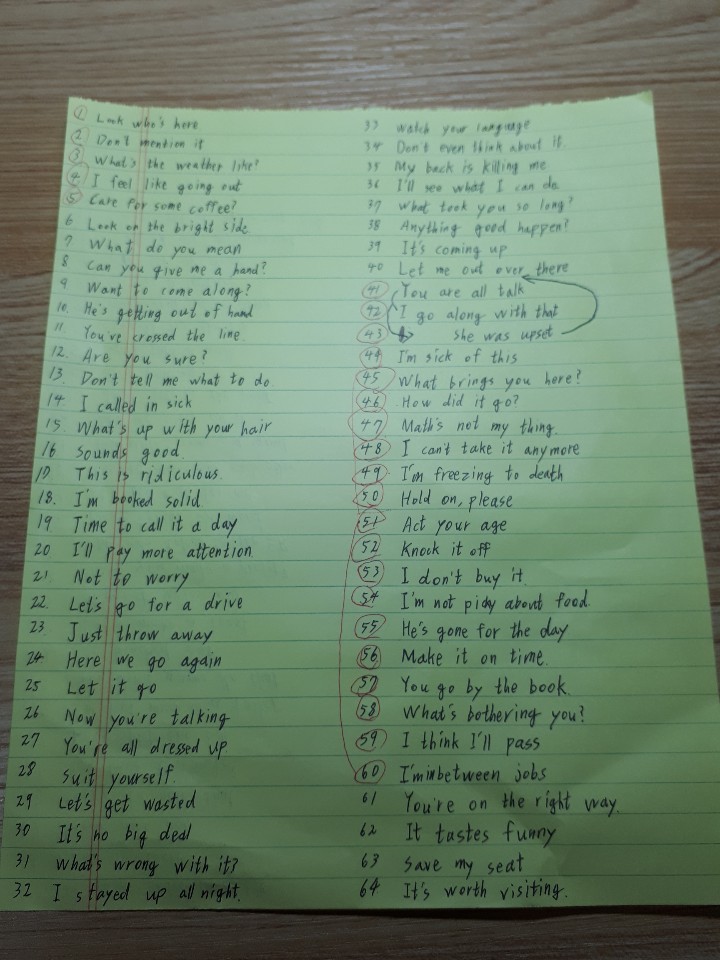 1 Look who's here
2 Don't mention it
3 What's the weather like?
4 I feel like going out
5 Care for some coffee?
6 Look on the bright side
7 What do you mean
8 Can you give me a hand?
9 Want to come along?
10. He's getting out of hand
11. You've crossed the line
12. Are you sure?
13. Don't tell me what to do
14. I called in sick
15. What's up with your hair
16 Sounds good.
17. This is ridiculous.
18. I'm booked solid
19 Time to call it a day
20 I'll pay more attention
21. Not to worry
22. Let's go for a drive
23. Just throw away
24 Here we go again
25 Let it go
26 Now you're talking
27 You're all dressed up
28 Suit yourself.
29 Let's get wasted
30 It's no big deal
31 What's wrong with it?
32 I stayed up all night.
33 watch your language
34 Don't even think about it.
35 My back is killing me
36 I'll see what I can do.
37 What took you so long?
38 Anything good happen?
39 It's coming up
40 Let me out over there
41 You are all talk
42 I go along with that
43 She was upset
44 I'm sick of this
45 What brings you here?
46 How did it go?
47 Math's not my thing.
48 I can't take it anymore
49 I'm freezing to death
50 Hold on, please
51 Act your age
52 Knock it off
53 I don't buy it.
54 I'm not picky about food.
55 He's gone for the day
56 Make it on time.
57 You go by the book.
58 What's bothering you?
59 I think I'll pass
60 I'm inbetween jobs
61 You're on the right way.
62 It tastes funny
63 Save my seat
64 It's worth visiting.